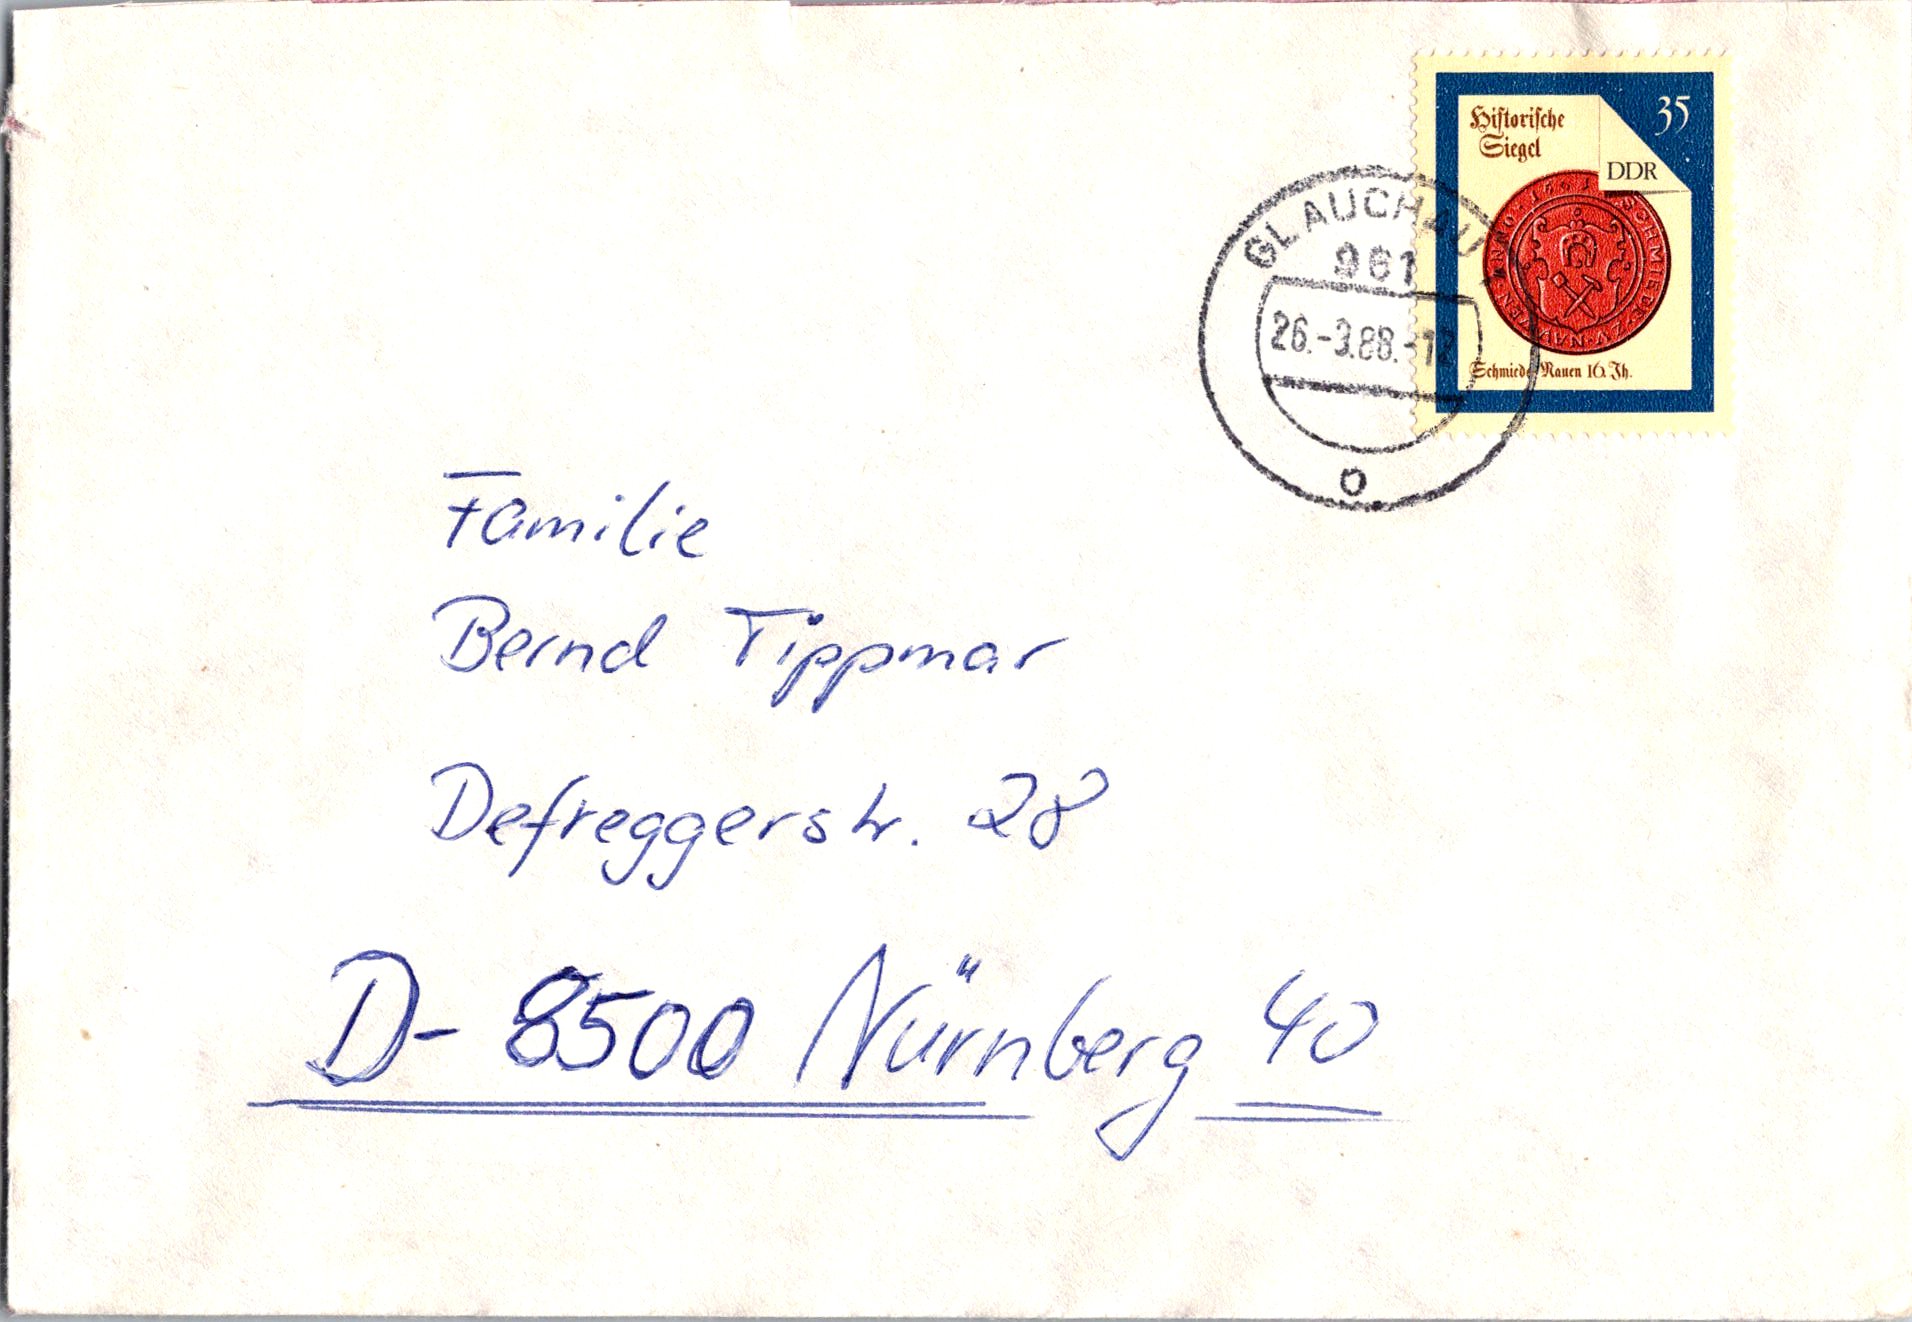 Historische
Siegel
35
DDR
Schmiede Nauen 16. Jh.
GLAUCHAU
961
26.-3.88.-12
o
Familie
Bernd Tippmar
Defreggerstr. 28
D-8500 Nürnberg 40